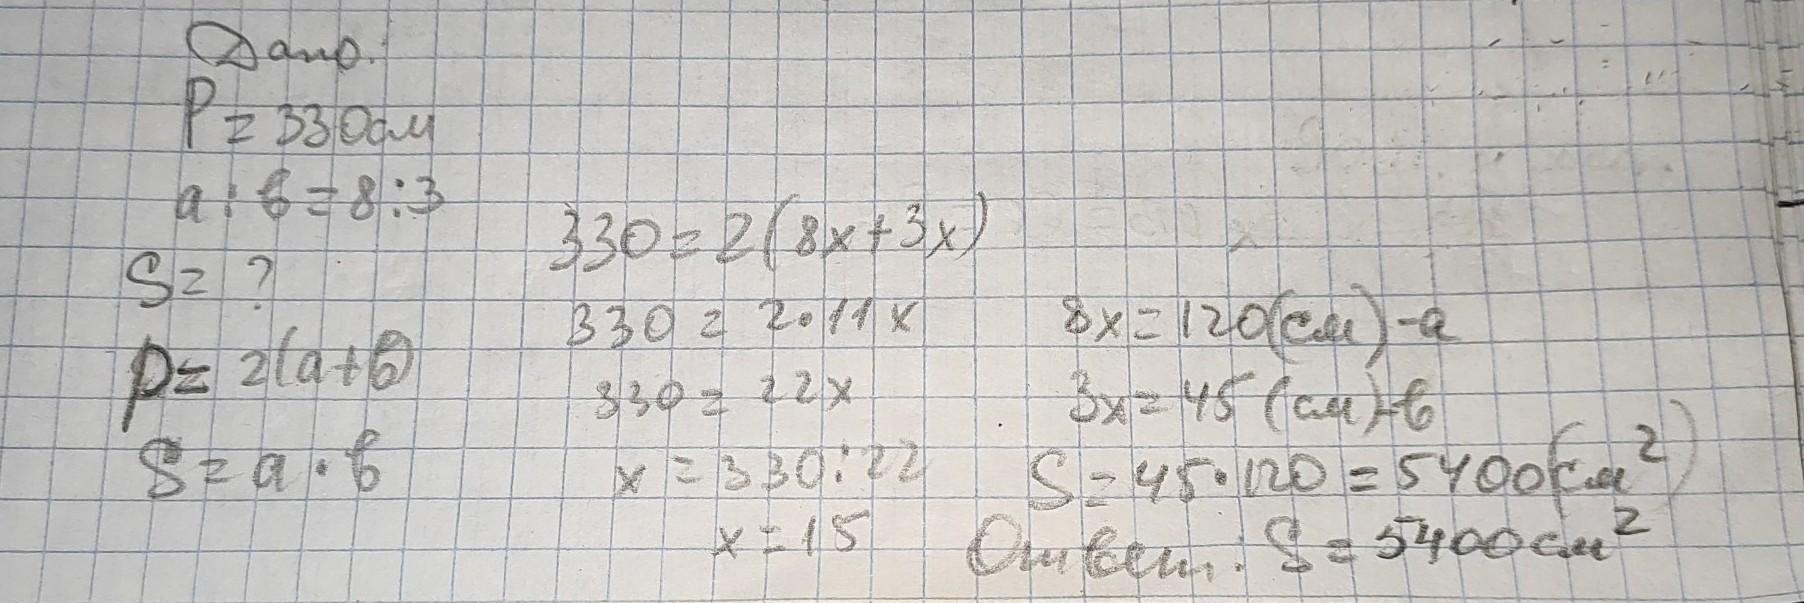 Дано:
P = 330см
a : b = 8 : 3
S = ?
p = 2(a+b)
S = a · b
330 = 2(8x+3x)
330 = 2·11x
330 = 22x
x = 330:22
x = 15
8x = 120(см)-a
3x = 45(см)-b
S = 45·120 = 5400(см²)
Ответ: S = 5400см²